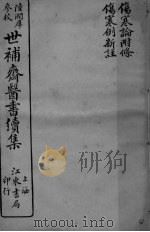 傷寒論附條
傷寒例新註
陸潤庠
參校
世補齋醫書續集
上海
江東書局
印行